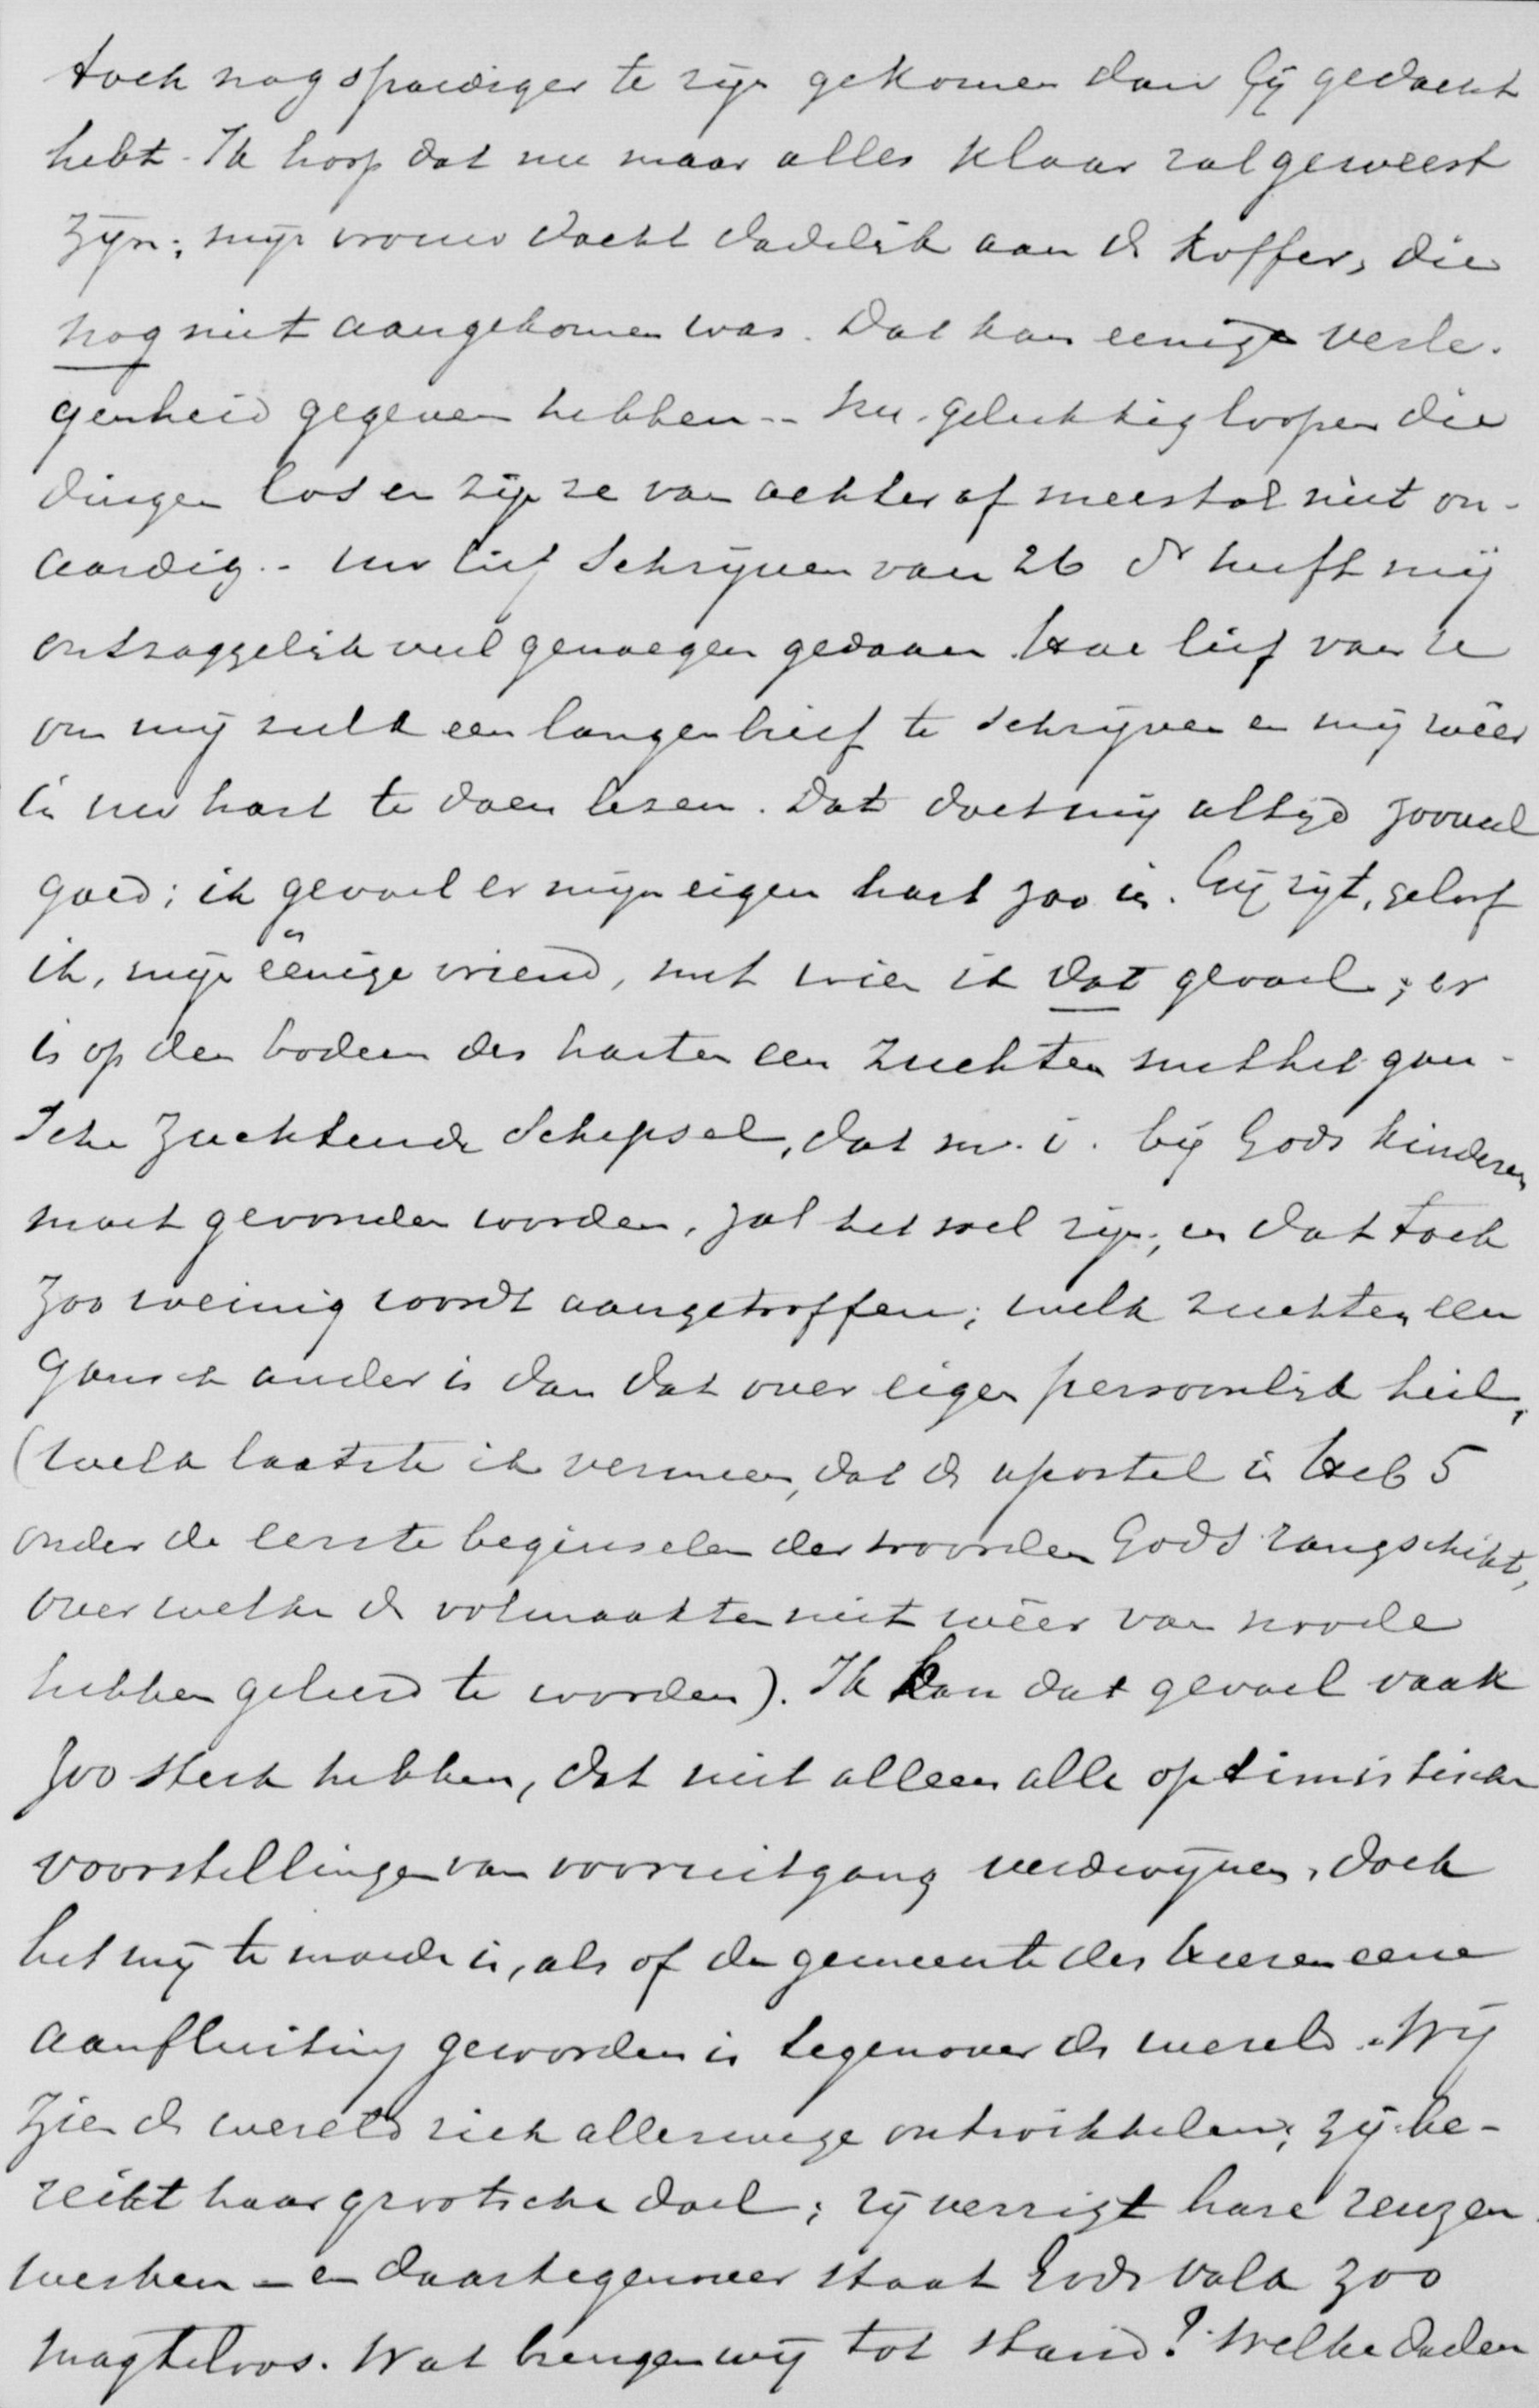 toch nog spoediger te zijn gekomen dan Gij gedacht
hebt. Ik hoop dat nu maar alles klaar zal geweest
zijn; mijn vrouw dacht dadelijk aan de koffer, die
nog niet aangekomen was. Dat kan eenige verle-
genheid gegeven hebben -- nu gelukkig loopen die
dingen los en zijn ze van achter af meestal niet on-
aardig. - Uw lief schrijven van 26 dr heeft mij
ontzaggelijk veel genoegen gedaan. Hoe lief van U
om mij zulk een langen brief te schrijven en mij wêer
in uw hart te doen lezen. Dat doet mij altijd zooveel
goed; ik gevoel er mijn eigen hart zoo in. Gij zijt, geloof
ik, mijn éénige vriend, met wien ik dat gevoel; er
is op den bodem des harten een zuchten met het gan-
sche zuchtende schepsel, dat m. i. bij Gods kinderen
moet gevonden worden, zal het wel zijn; en dat toch
zoo weinig wordt aangetroffen; welk zuchten een
gansch ander is dan dat over eigen persoonlijk heil,
(welk laatste ik vermeen, dat de apostel in Heb 5
onder de eerste beginselen der woorden Gods rangschikt,
over welke de volmaakten niet wêer van noode
hebben geleerd te worden). Ik kan dat gevoel vaak
zoo sterk hebben, dat niet alleen alle optimistische
voorstellingen van vooruitgang verdwijnen, doch
het mij te moede is, als of de gemeente des Heeren eene
aanfluiting geworden is tegenover de wereld. Wij
zien de wereld zich allerwege ontwikkelen; zij be-
reikt haar grootsche doel; zij verrigt hare reuzen-
werken - en daartegenover staat Gods volk zoo
magteloos. Wat brengen wij tot stand? Welke daden